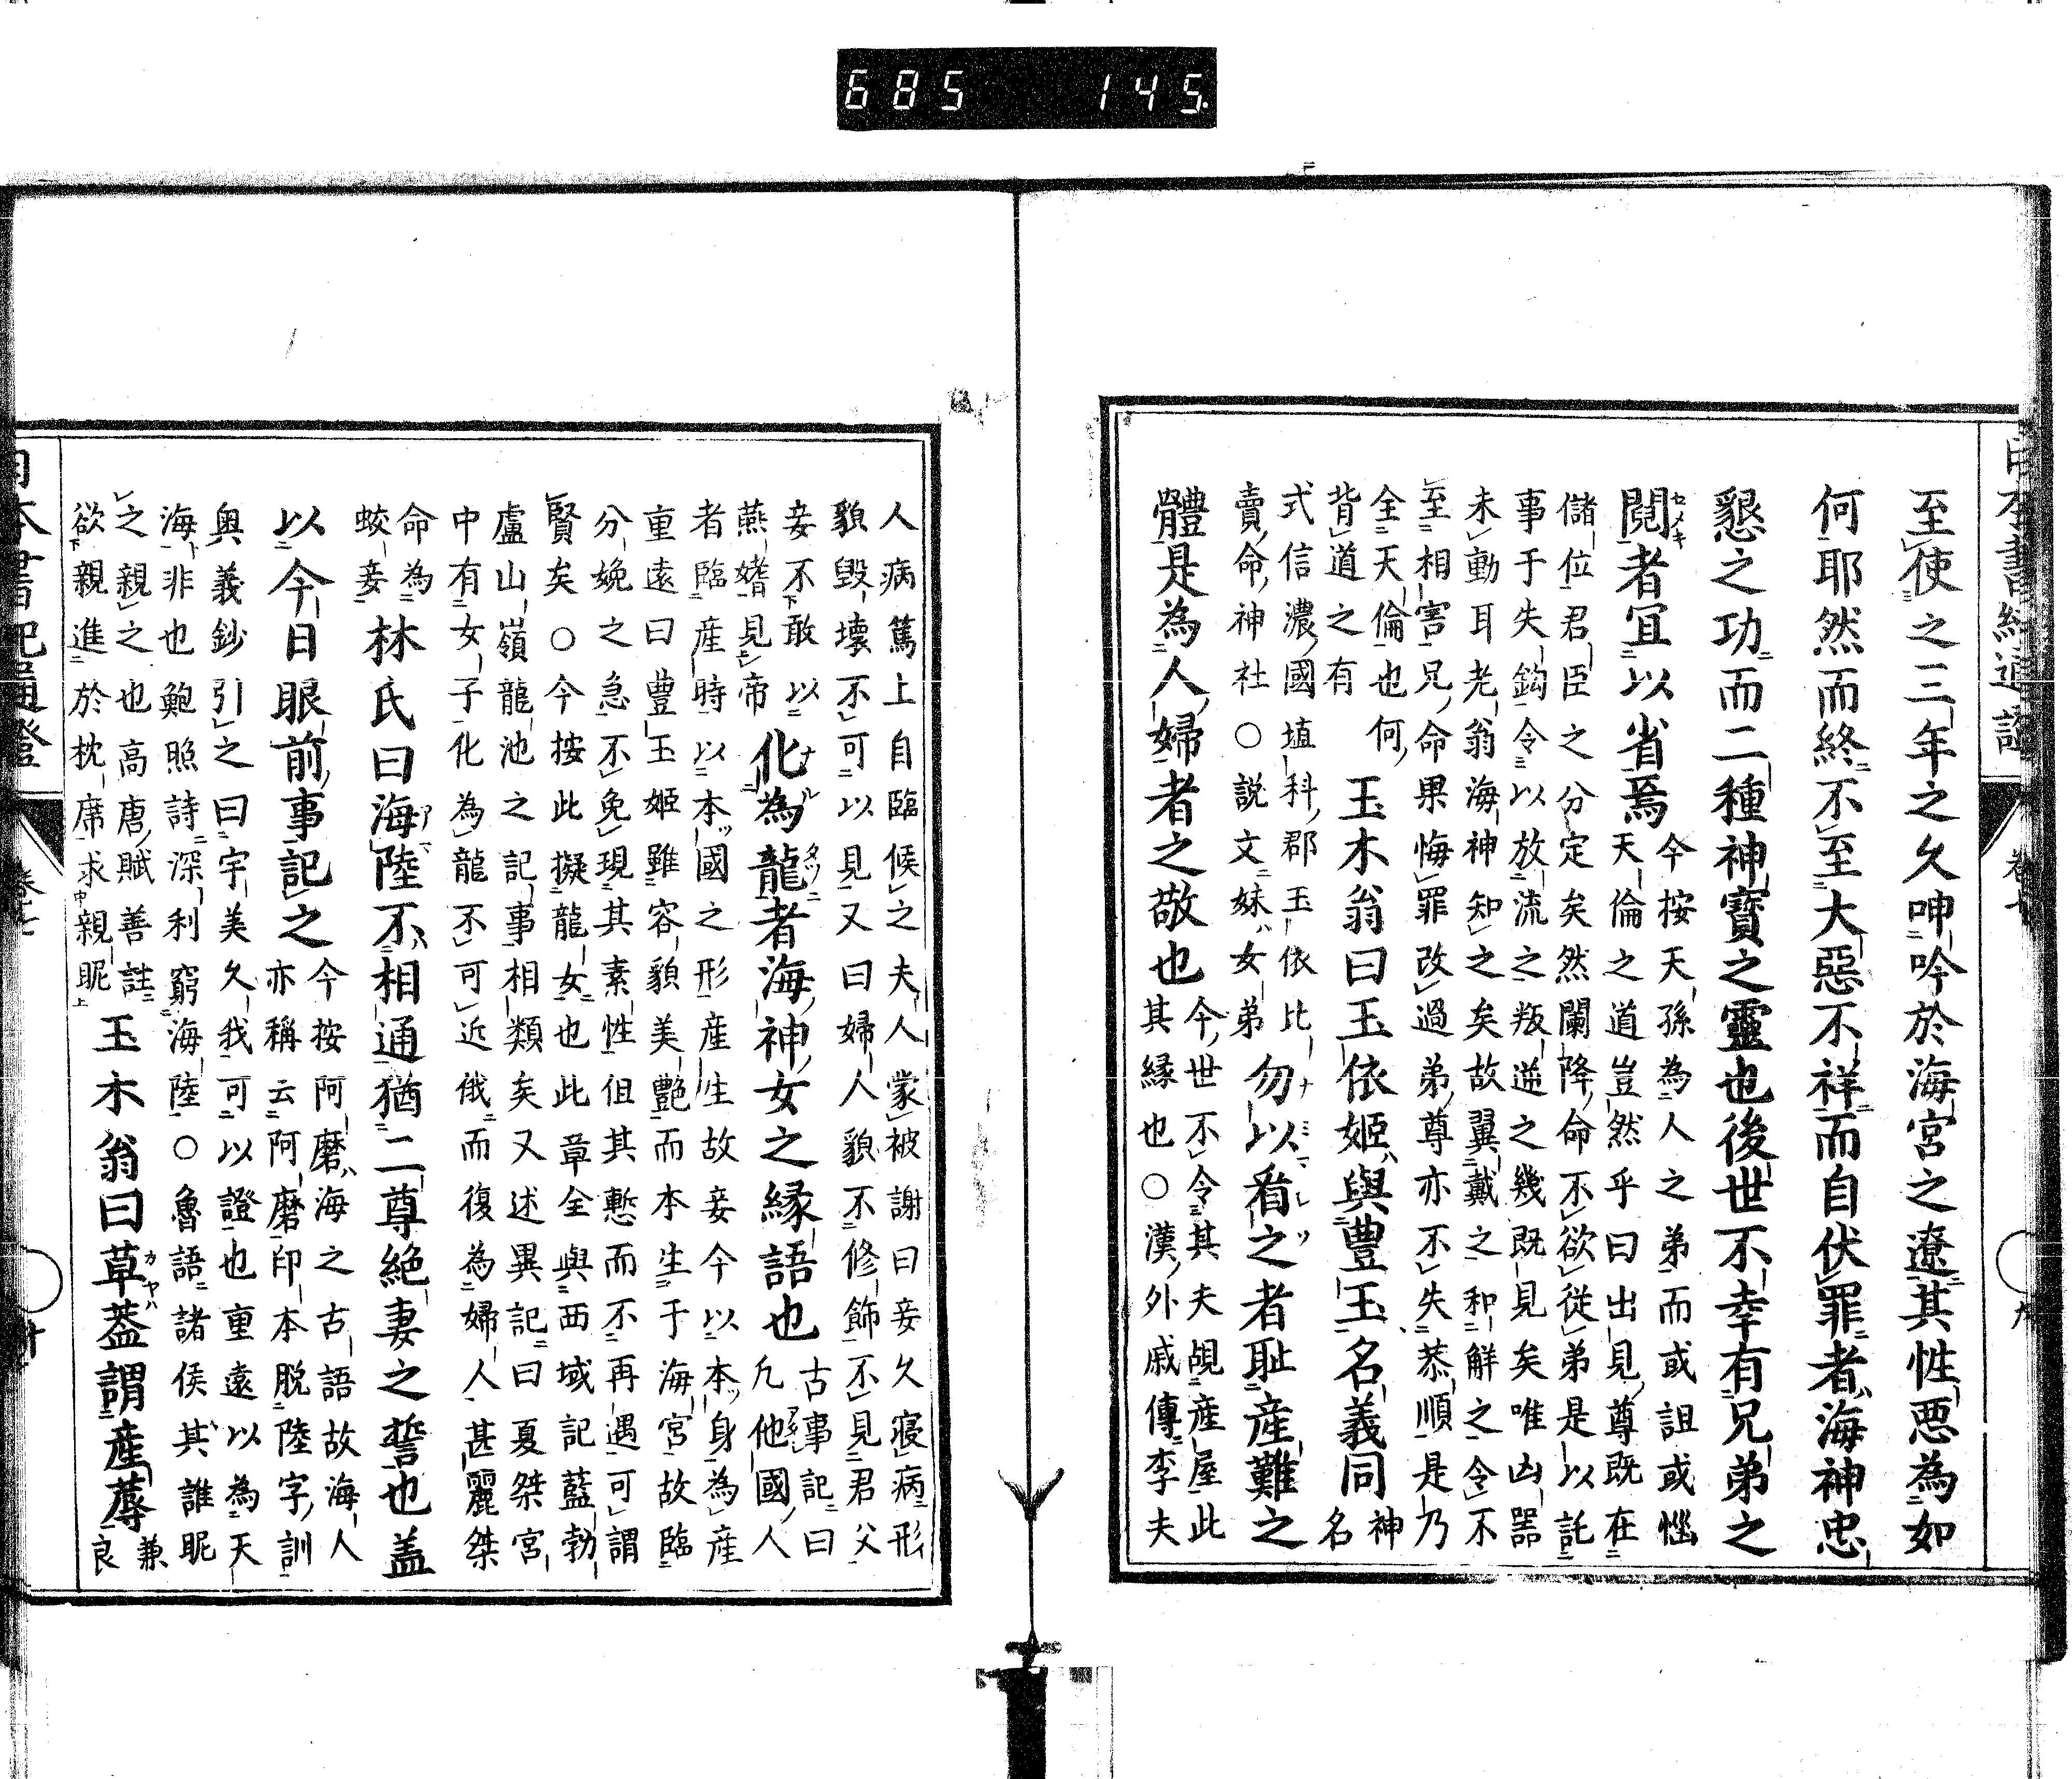 685 145.
至使之三年之久呻吟於海宮之遼其性惡為如
何耶然而終不至大惡不祥而自伏罪者海神忠
懇之功而二種神寶之靈也後世不幸有兄弟之
鬩者宜以省焉
今按天孫為人之弟而或詛或惱
天倫之道豈然乎曰出見尊既在
儲位君臣之分定矣然闌降命不欲從弟是以託
事于失鈎令以放流之叛逆之幾既見矣唯凶噐
未動耳老翁海神知之矣故翼戴之和解之令不
至相害兄命果悔罪改過弟尊亦不失恭順是乃
全天倫也何
背道之有
玉木翁曰玉依姬與豊玉名義同
神
名
式信濃國埴科郡玉依比
賣命神社○說文妹女弟
勿以看之者耻産難之
體是為人婦者之敬也
今世不令其夫覘産屋此
其縁也○漢外戚傳李夫
人病篤上自臨候之夫人蒙被謝曰妾久寢病形
貌毀壞不可以見又曰婦人貌不修飾不見君父
妾不敢以
燕媠見帝
化為龍者海神女之縁語也
古事記曰
凡他國人
者臨産時以本國之形産生故妾今以本身為産
重遠曰豊玉姬雖容貌美艷而本生于海宮故臨
分娩之急不免現其素性但其慙而不再遇可謂
賢矣○今按此擬龍女也此章全與西域記藍勃
盧山嶺龍池之記事相類矣又述異記曰夏桀宮
中有女子化為龍不可近俄而復為婦人甚麗桀
命為
蛟妾
林氏曰海陸不相通猶二尊絶妻之誓也盖
以今日眼前事記之
今按阿磨海之古語故海人
亦稱云阿磨印本脫陸字訓
奥義鈔引之曰宇美久我可以證也重遠以為天
海非也鮑照詩深利窮海陸○魯語諸侯其誰昵
之親之也高唐賦善註
欲親進於枕席求親昵
玉木翁曰草葢謂産蓐
兼
良